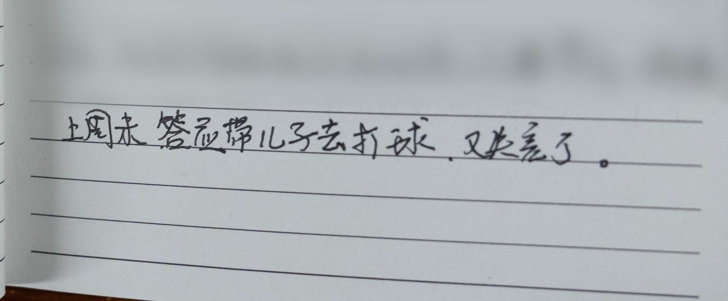 上周末 答应带儿子去打球，又失言了。